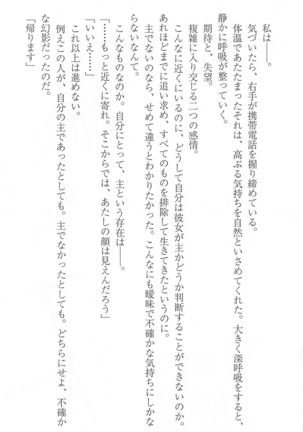 私は――。
気づいたら、右手が携帯電話を握り締めている。
体温であたたまったそれは、高ぶる気持ちを自然といさめてくれた。大きく深呼吸をすると、
静かに呼吸が整っていく。
期待と、失望。
複雑に入り交じる二つの感情。
こんなに近くにいるのに、どうして自分は彼女が主かどうか判断することができないのか。
あれほどまでに追い求め、すべてのものを排除して生きてきたというのに。
主でないのなら、せめて違うとわかりたかった。こんなにも曖昧で不確かな気持ちにしかな
らないなんて。
こんなものなのか。自分にとって、主という存在は――。
「……もっと近くに寄れ。そこからでは、あたしの顔は見えんだろう」
「いいえ……」
これ以上は進めない。
例えこの人が、自分の主であったとしても。主でなかったとしても。どちらにせよ、不確か
な幻影だったのだ。
「帰ります」